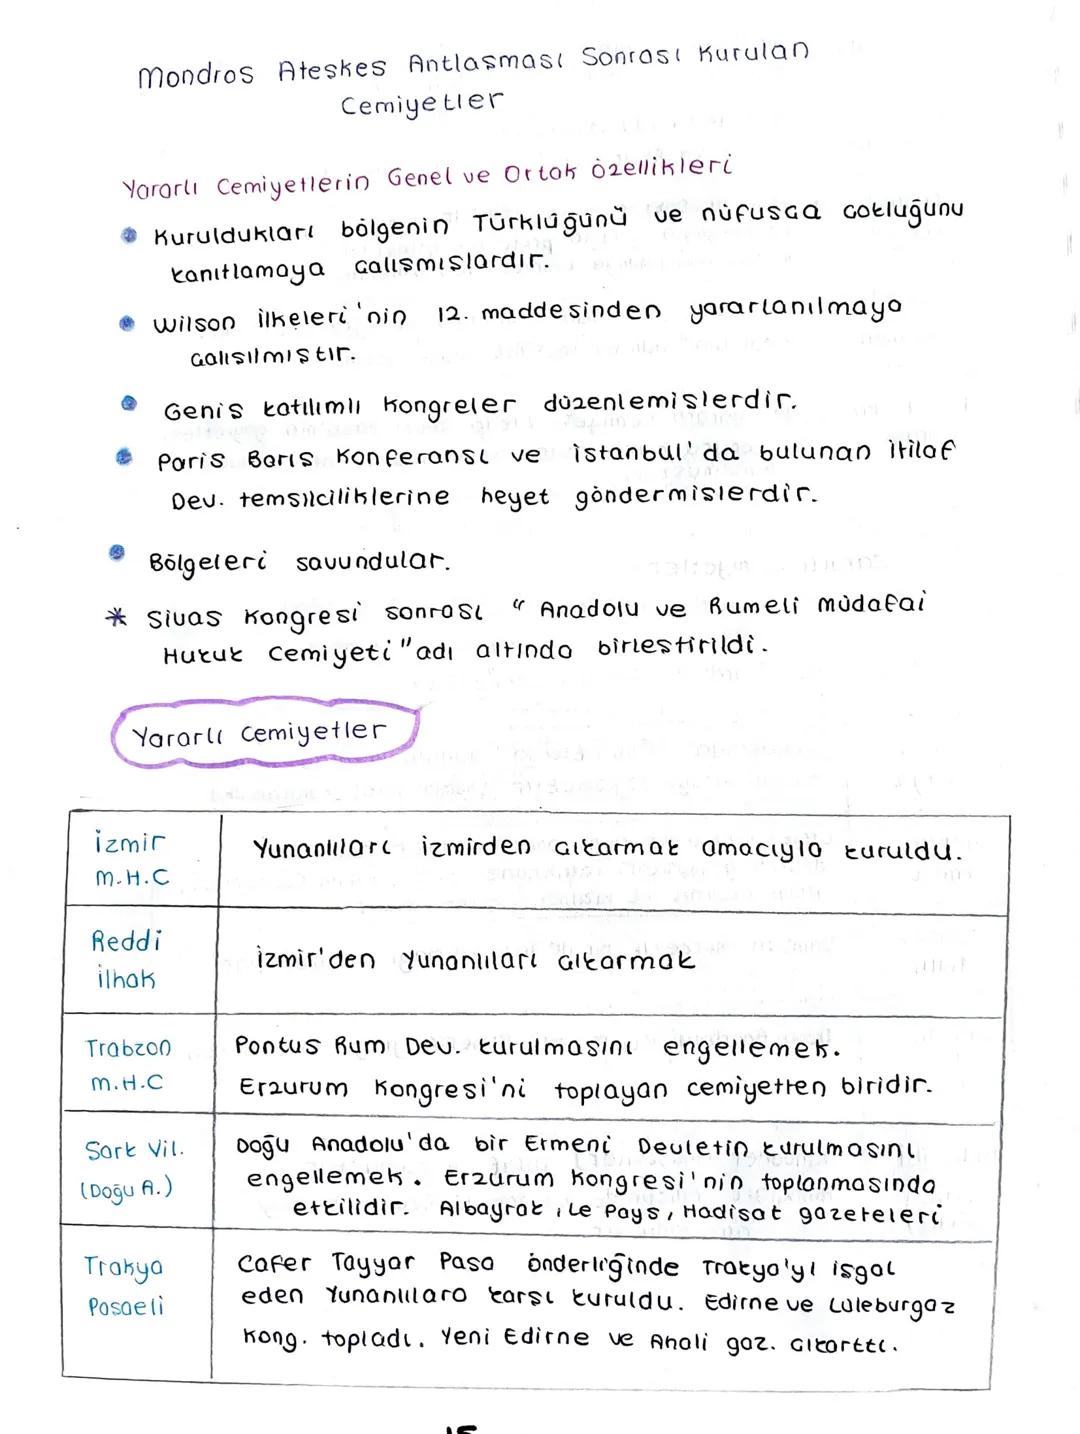 Mondros Ateşkes Antlaşması Sonrası Kurulan
Cemiyetler
Yararlı Cemiyetlerin Genel ve Ortak özellikleri
Kuruldukları bölgenin Türklüğünü ve nüfusça çokluğunu
kanıtlamaya çalışmışlardır.
Wilson ilkeleri'nin 12. maddesinden yararlanılmaya
çalışılmıştır.
Geniş katılımlı Kongreler düzenlemişlerdir.
Paris Barış Konferansı ve istanbul'da bulunan itilaf
Dev. temsilciliklerine heyet göndermişlerdir.
Bölgeleri savundular.
* Sivas Kongresi sonrası "Anadolu ve Rumeli müdafai
Hukuk Cemiyeti" adı altında birleştirildi.
Yararlı Cemiyetler
izmir
M.H.C
Yunanlıları izmirden çıkarmak amacıyla kuruldu.
Reddi
ilhak
izmir'den Yunanlıları çıkarmak
Trabzon
M.H.C
Pontus Rum Dev. kurulmasını engellemek.
Erzurum Kongresi'ni toplayan cemiyetten biridir.
Şark Vil.
(Doğu A.)
Doğu Anadolu'da bir Ermeni Devletin kurulmasını
engellemek. Erzurum Kongresi'nin toplanmasında
etkilidir. Albayrak, Le Pays, Hadisat gazeteleri
Trakya
Paşaeli
Cafer Tayyar Paşa önderliğinde Trakya'yı işgal
eden Yunanlılara karşı kuruldu. Edirne ve Lüleburgaz
Kong. topladı. Yeni Edirne ve Ahali gaz. çıkarttı.
15